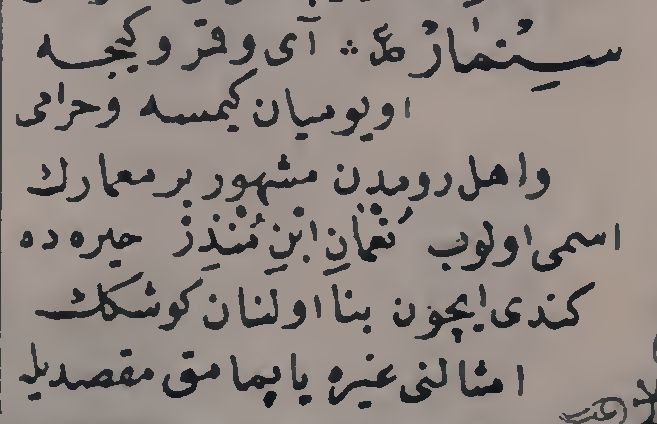 سِنِمَّارْ ع ؞ آی وقمر و کیجه
اویومیان کیمسه و حرامی
واهل رومدن مشهور بر معمارك
اسمی اولوب نُعْمَانِ ابْنِ مُنْذِرْ حیره ده
کندی ایچون بنا اولنان کوشكك
امثالنی غیره یاپمامق مقصدیله